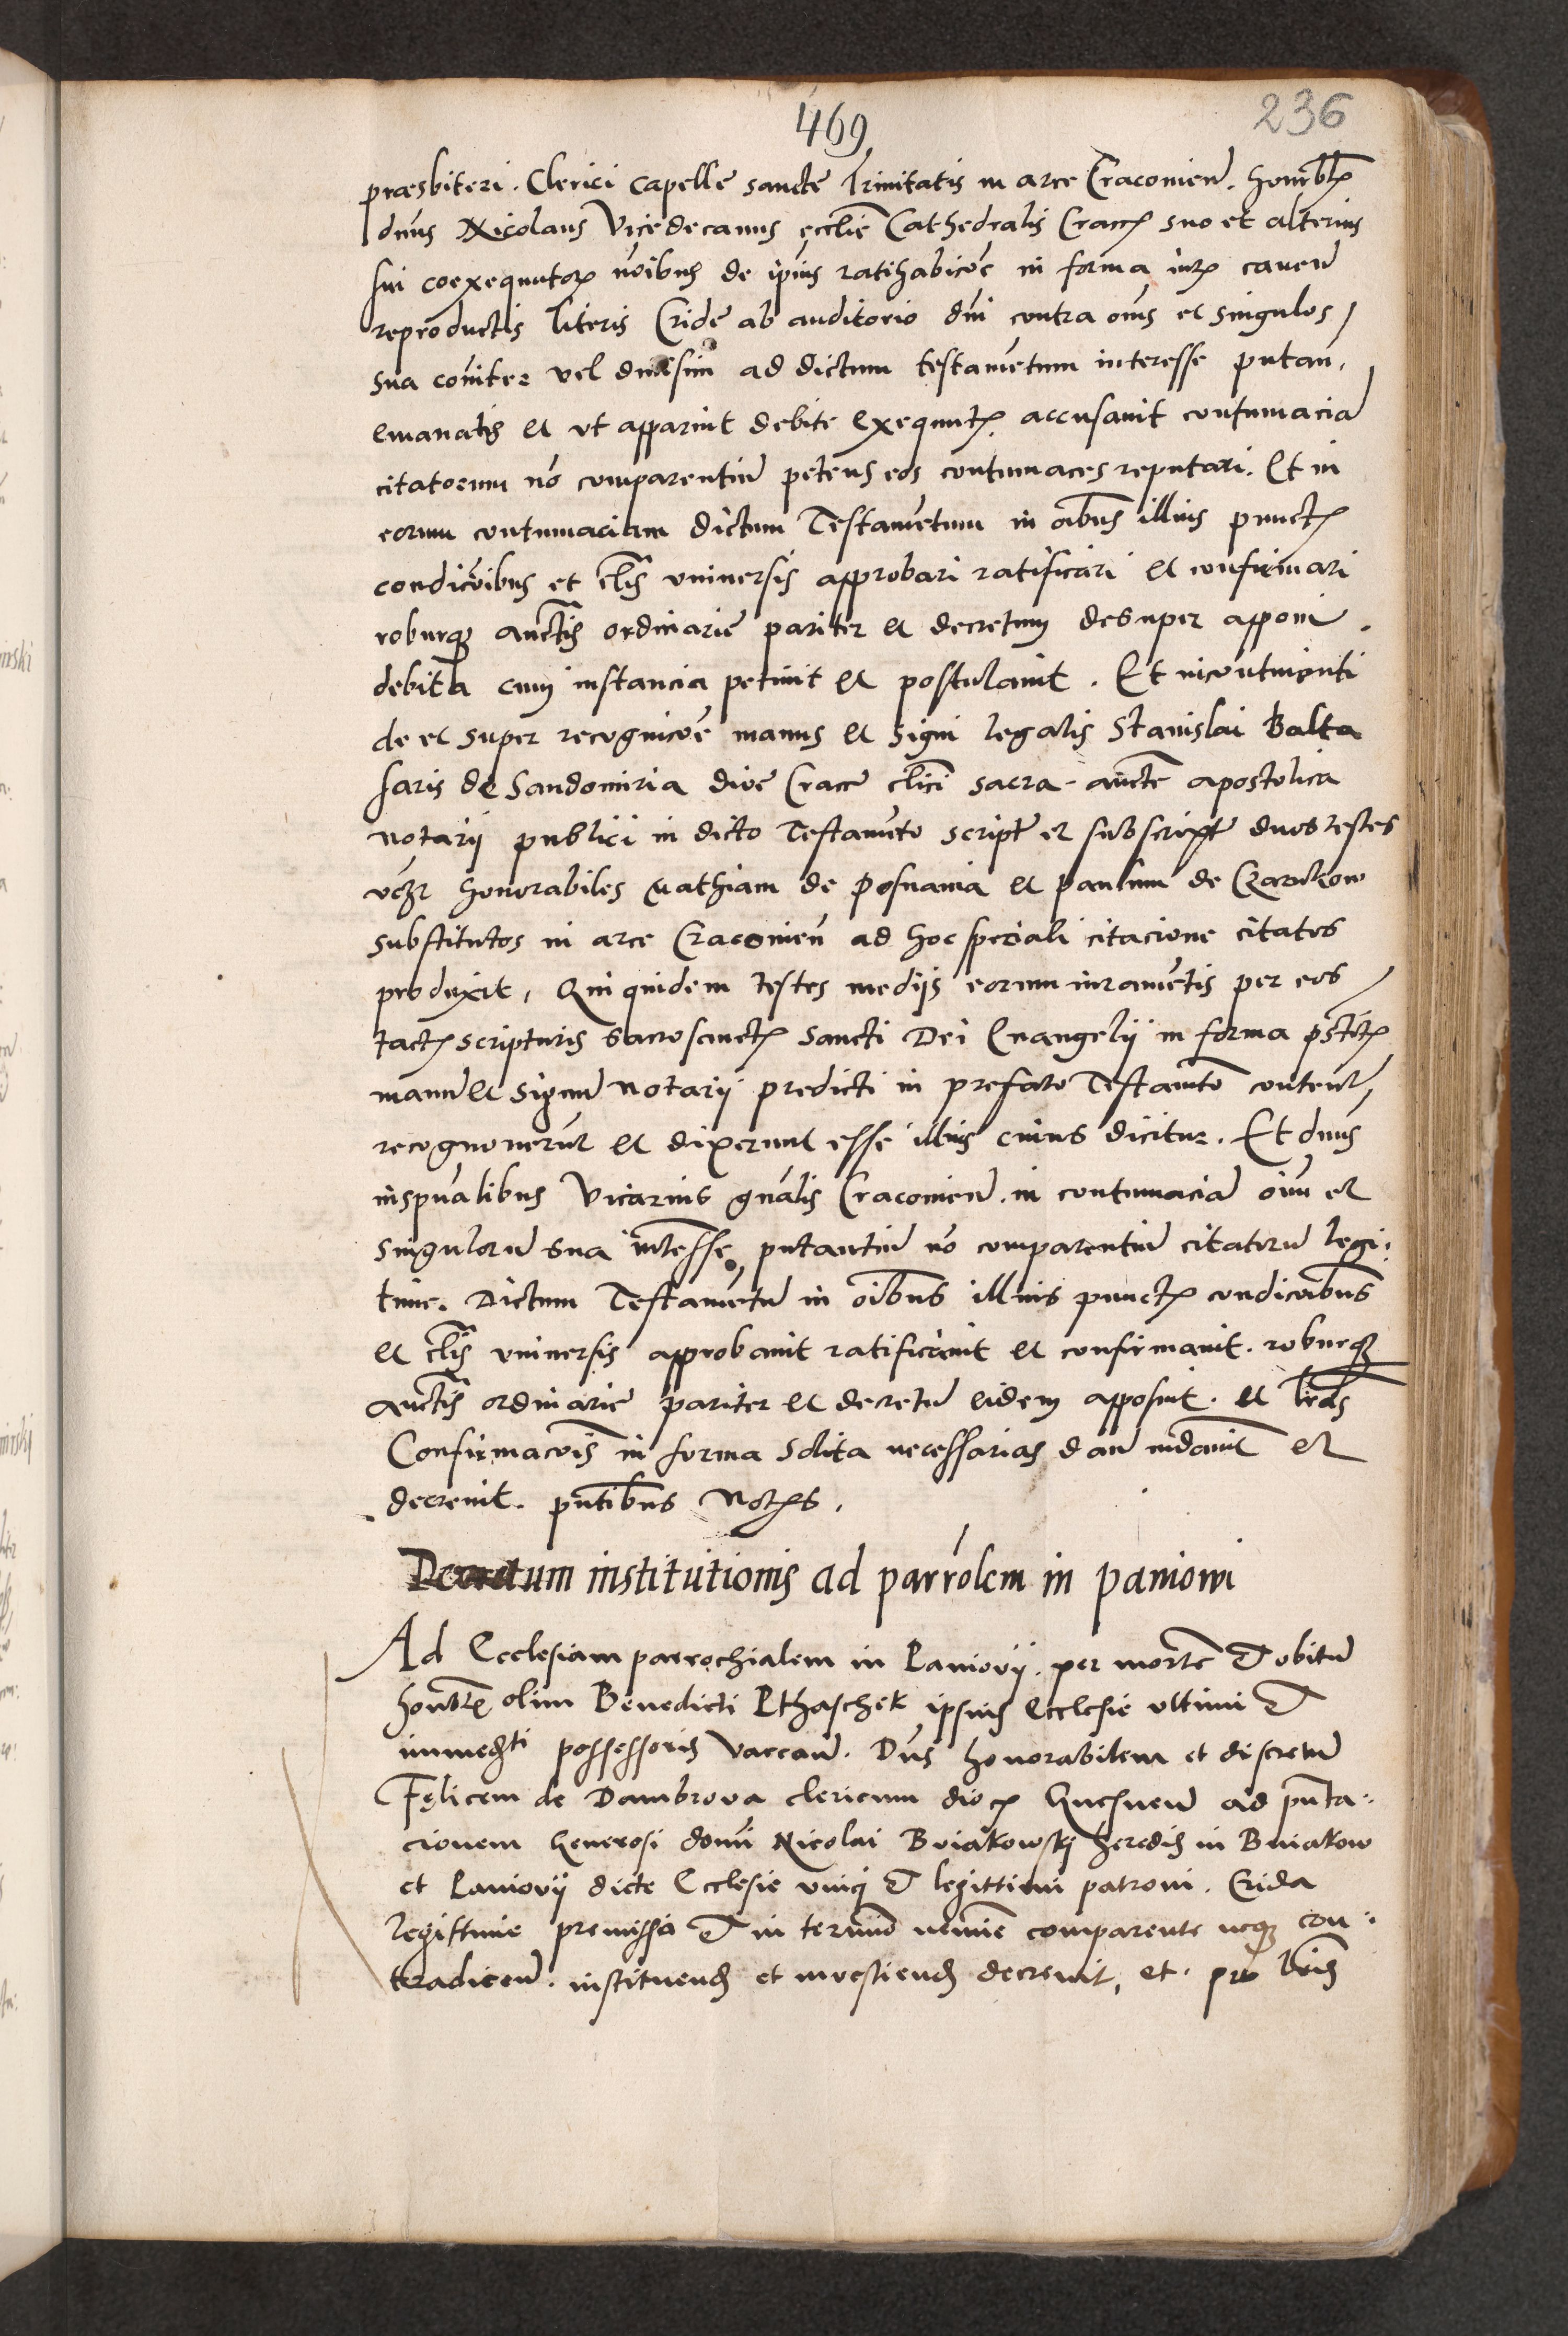 469
236
præsbiteri. Clerici Capelle sancte Trinitatis in arce Cracovieñ. honorbłꝭ
dñus Nicolaus Vicedecanus ecclíe Cathedralis Craccꝭ suo et alterius
sui coexequutorꝭ nõibus de ipsius ratihabicõe in forma iurꝭ caveñ
reproductis literis Cride ab auditorio dñi contra oñs et singulos
sua cõniter vel diuisim ad dictum testamẽtum interesse putañ.
emanatis et ut apparuit debite exequutꝭ. accusavit contumaciã
citatorum nõ comparentiũ petens eos contumaces reputari. Et in
eorum contumaciam dictum Testamẽtum in oĩbus illius punctꝭ
condicõibus et clis universis approbari ratificari et confirmari
roburqꝫ auctis ordinarie pariter et decretum desuper apponi.
debita cum instancia petiuit et postulauit. Et incontinenti
de et super recognicõe manus et signi legalis Stanislai Balta
saris de Sandomiria dioc̃ Cracc̃ clici sacra auctẽ apostolica
notarij publici in dicto Testamẽto script̃ et subscript̃ duos testes
vcꝫ honorabiles Mathiam de Posnania et paulum de Czarnkow
substitutos in arce Cracovieñ ad hoc speciali citacione citatos
produxit, Qui quidem testes mediis eorum iuramẽtis per eos
tactꝭ scripturis sacrosanctꝭ sancti Dei Evangelij in forma pstitꝭ
manũ et signũ notarij predicti in prefato Testamto content̃,
recognoverũt et dixerunt esse illius cuius dicitur. Et dñus
inspũalibus Vicarius gñalis Cracovieñ. in contumaciã oĩum et
singulorũ sua interesse putantiũ nõ comparentiũ citatorũ legi:
time. Dictum Testamẽtũ in oĩbus illius punctꝭ condicõibus
et clis universis approbavit ratificavit et confirmavit. roburqꝫ
auctis ordinarie pariter et decretũ eidem apposuit. et lras
Confirmacõis in forma solita necessarias dañ mdavit et
decrevit. pñtibus Notꝭs.
Decretum institutionis ad parrõlem in paniowi
Ad Ecclesiam parrochialem in Paniovij. per mortẽ & obitũ
honorbłꝭ olim Benedicti Pthaschek ipsius Ecclesie ultimi &
immedᵗⁱ possessoris vaccañ. Dñs honorabilem et discretũ
Fęlicem de Dambrova clericum diocꝭ Gnesneñ ad pñta:
cionem Generosi domi Nicolai Bviakowskj heredis in Buiakow
et Paniovij dicte Ecclesie unicj & legittimi patroni. Crida
legittime premissa & in termio nemine comparente neqꝫ con:
tradiceñ. instituendꝭ et investiendꝭ decrevit, et. pro lris